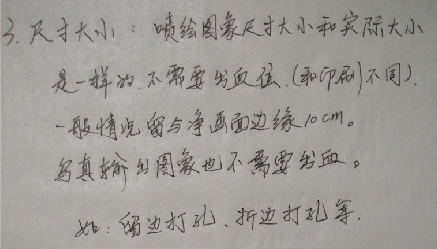 3. 尺寸大小：喷绘图象尺寸大小和实际大小
是一样的.不需要出血位.(和印刷不同).
一般情况留与净画面边缘10cm。
写真输出图象也不需要出血。
如：留边打孔.折边打孔等.